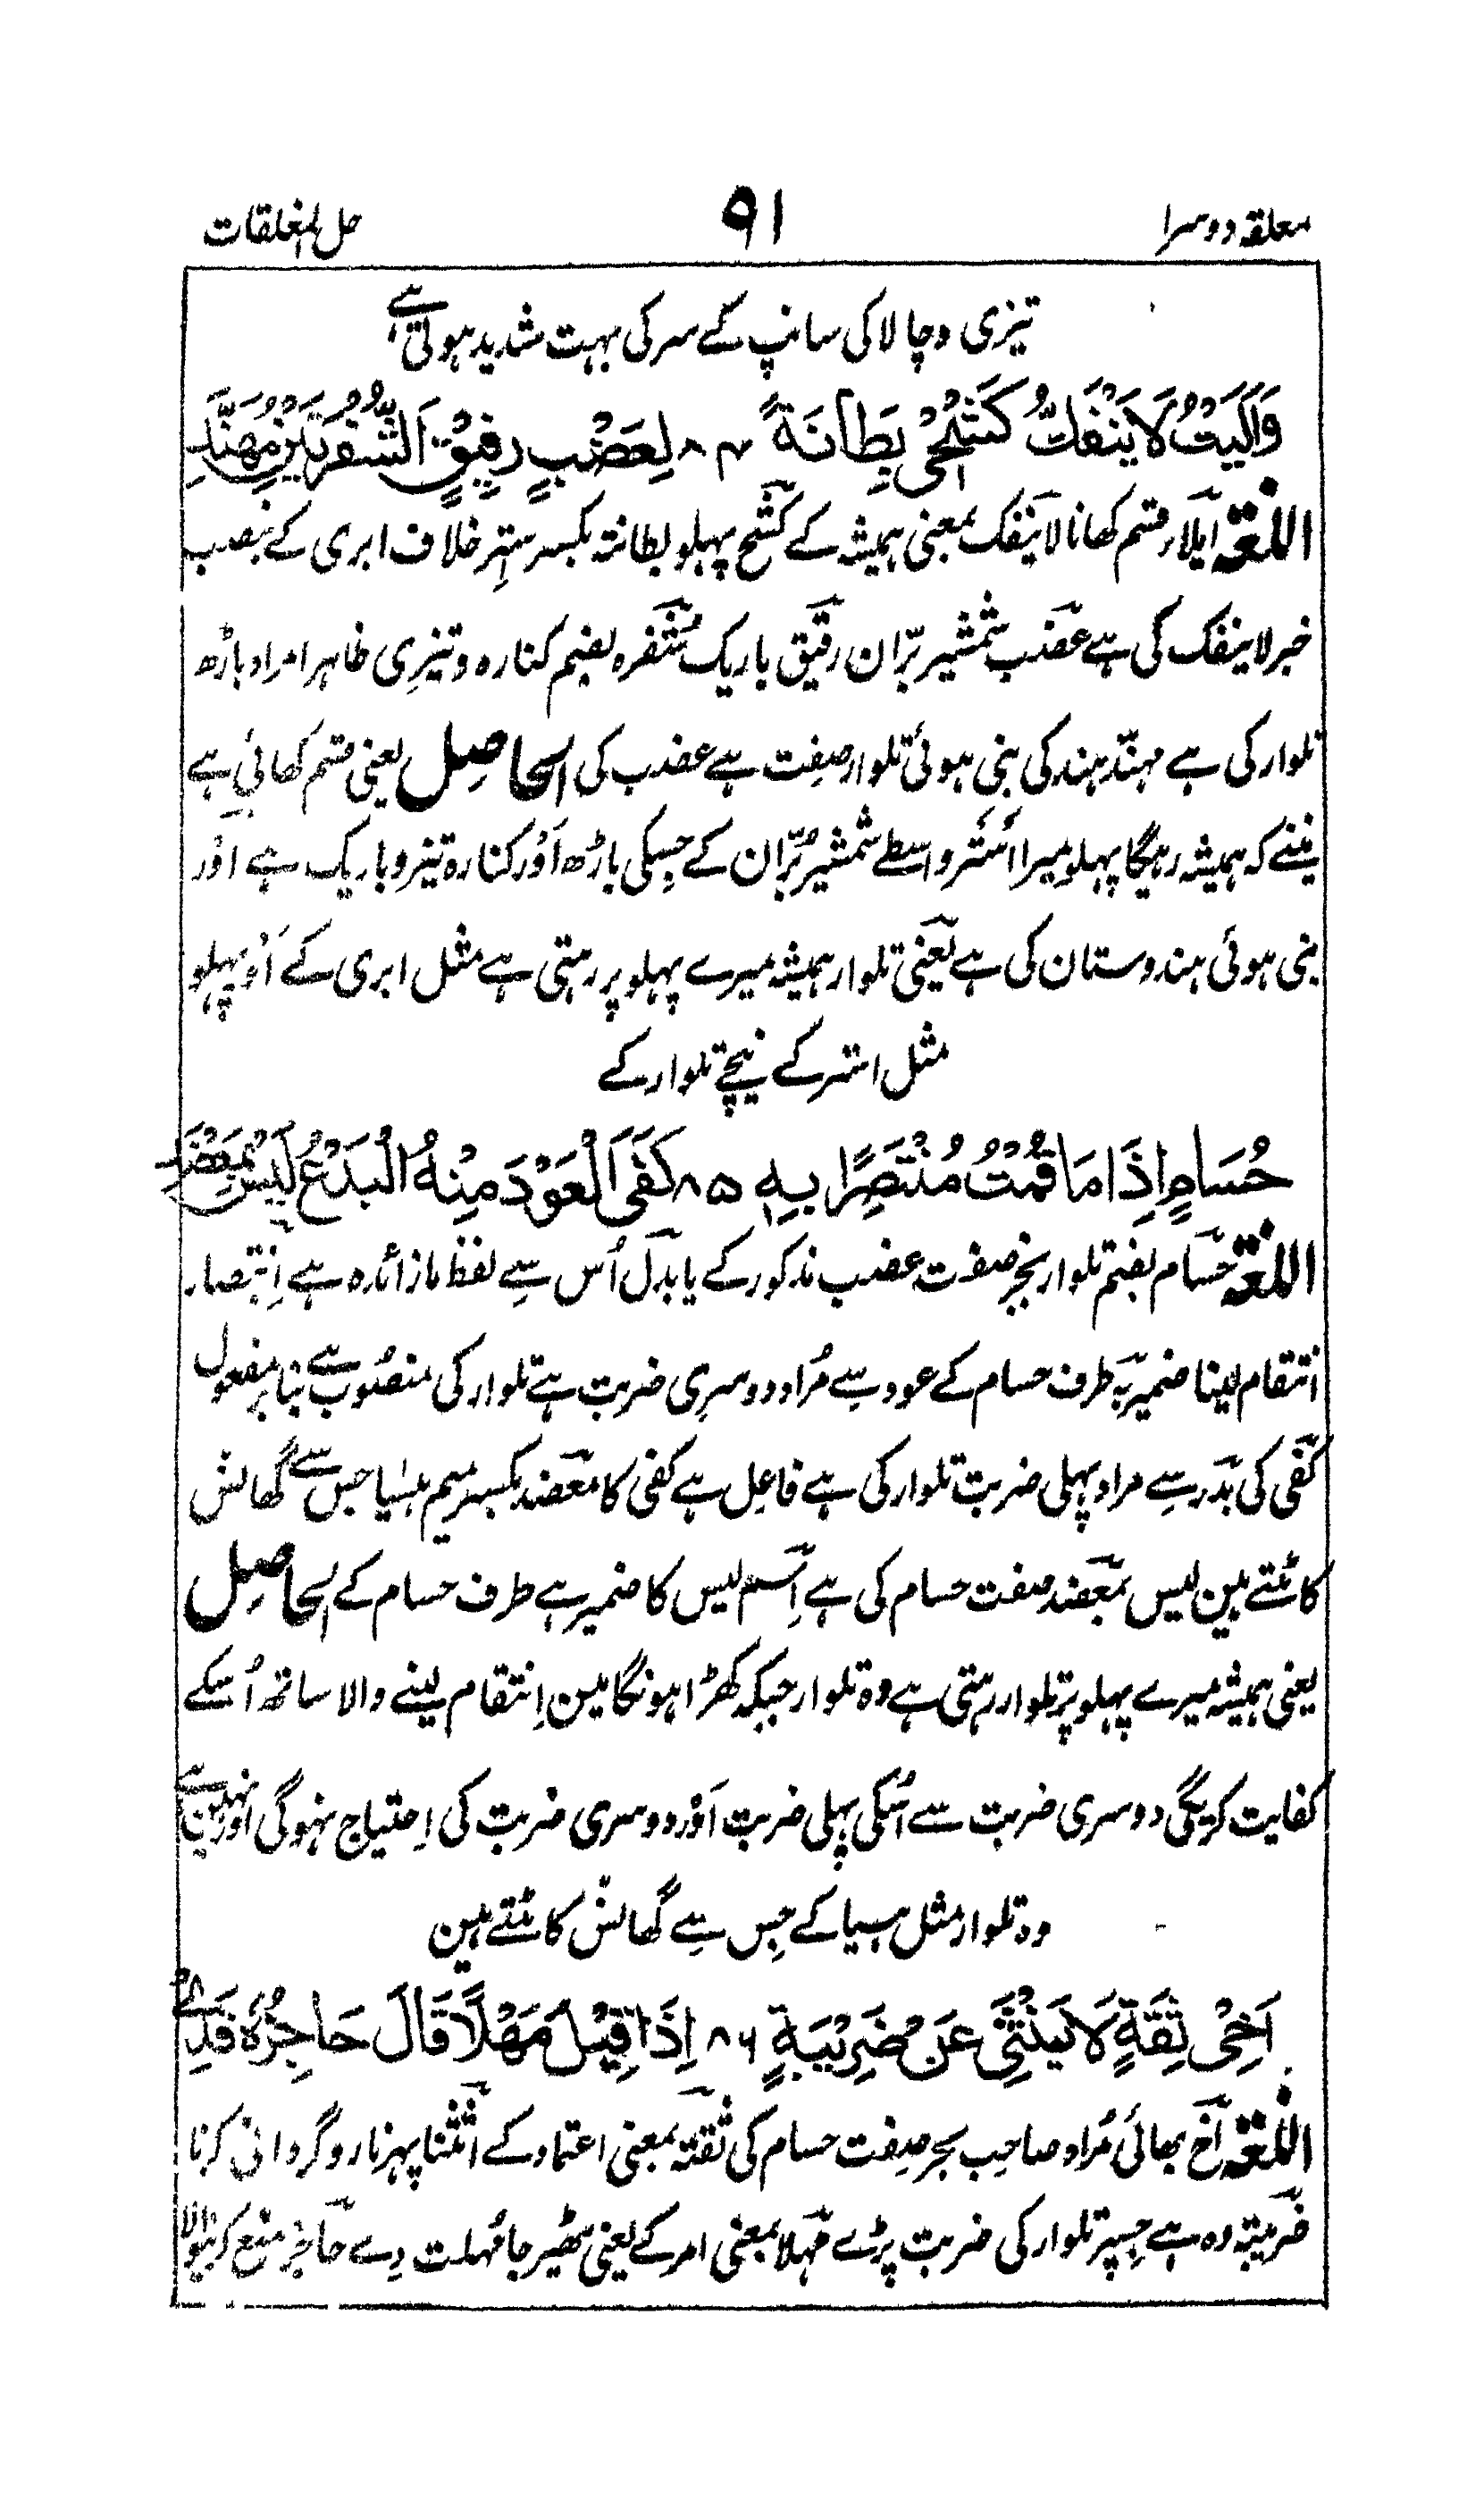 معلقہ دوسرا
۹۱
حل المغلقات
تیزی و چالاکی سانپ کے سر کی بہت شدید ہوتی ہے
وَآلَيْتُ لَا يَنْفَكُّ كَشْحِيْ بِطَانَةً ۸۴ لِعَضْبٍ رَقِيْقِ الشُّفْرَتَيْنِ مُهَنَّدِ
اللغة ایلاء قسم کھانا لاینفک بمعنی ہمیشہ کے کشح پہلو بطانتہ بکسر ستر خلاف ابری کے بنصب
خبر لاینفک کی ہے عضب شمشیر برّان رقیق باریک شفرہ بضم کنارہ و تیزی ظاہرا مراد باڑھ
تلوار کی ہے مہنّد ہند کی بنی ہوئی تلوار صفت ہے عضب کی الحاصل یعنی قسم کھائی ہے
مینے کہ ہمیشہ رہیگا پہلو میرا استر واسطے شمشیر برّان کے جسکی باڑھ اور کنارہ تیز و باریک ہے اور
بنی ہوئی ہندوستان کی ہے یعنی تلوار ہمیشہ میرے پہلو پر رہتی ہے مثل ابری کے اور پہلو
مثل استر کے نیچے تلوار کے
حُسَامٍ اِذَا مَا قُمْتُ مُنْتَصِرًا بِهٖ ۸۵ كَفَى الْعَوْدَ مِنْهُ الْبَدْءُ لَيْسَ بِمِعْضَدِ
اللغة حسام بضم تلوار بجر صفت عضب مذکور کے یا بدل اُس سے لفظ ما زائدہ ہے اِنتصار
انتقام لینا ضمیر بہ طرف حسام کے عود سے مُراد دوسری ضربت ہے تلوار کی منصُوب ہے بنا بر مفعول
کفی کی بدء سے مراد پہلی ضربت تلوار کی ہے فاعِل ہے کفی کا معضد بکسر میم ہنسیا جس سے گھانس
کاٹتے ہین لیس بمعضد صفت حسام کی ہے اِسم لیس کا ضمیر ہے طرف حسام کے الحاصل
یعنی ہمیشہ میرے پہلو پر تلوار رہتی ہے وہ تلوار جبکہ کھڑا ہونگا مین اِنتقام لینے والا ساتھ اُسکے
کفایت کریگی دوسری ضربت سے اُسکی پہلی ضربت اور دوسری ضربت کی اِحتیاج نہوگی اور نہین ہے
وہ تلوار مثل ہسیا کے جس سے گھانس کاٹتے ہین
اَخِيْ ثِقَةٍ لَا يَنْثَنِيْ عَنْ ضَرِيْبَةٍ ۸۶ اِذَا قِيْلَ مَهْلًا قَالَ حَاجِزُهٗ قَدِيْ
اللغة اَخ بھائی مُراد صاحب بجر صفت حسام کی ثقتہ بمعنی اعتماد کے انثنا پھرنا روگردانی کرنا
ضریبتہ وہ ہے جسپر تلوار کی ضربت پڑے مہلا بمعنی امر کے یعنی ٹھیر جا مُہلت دے حاجز منع کرنیوالا